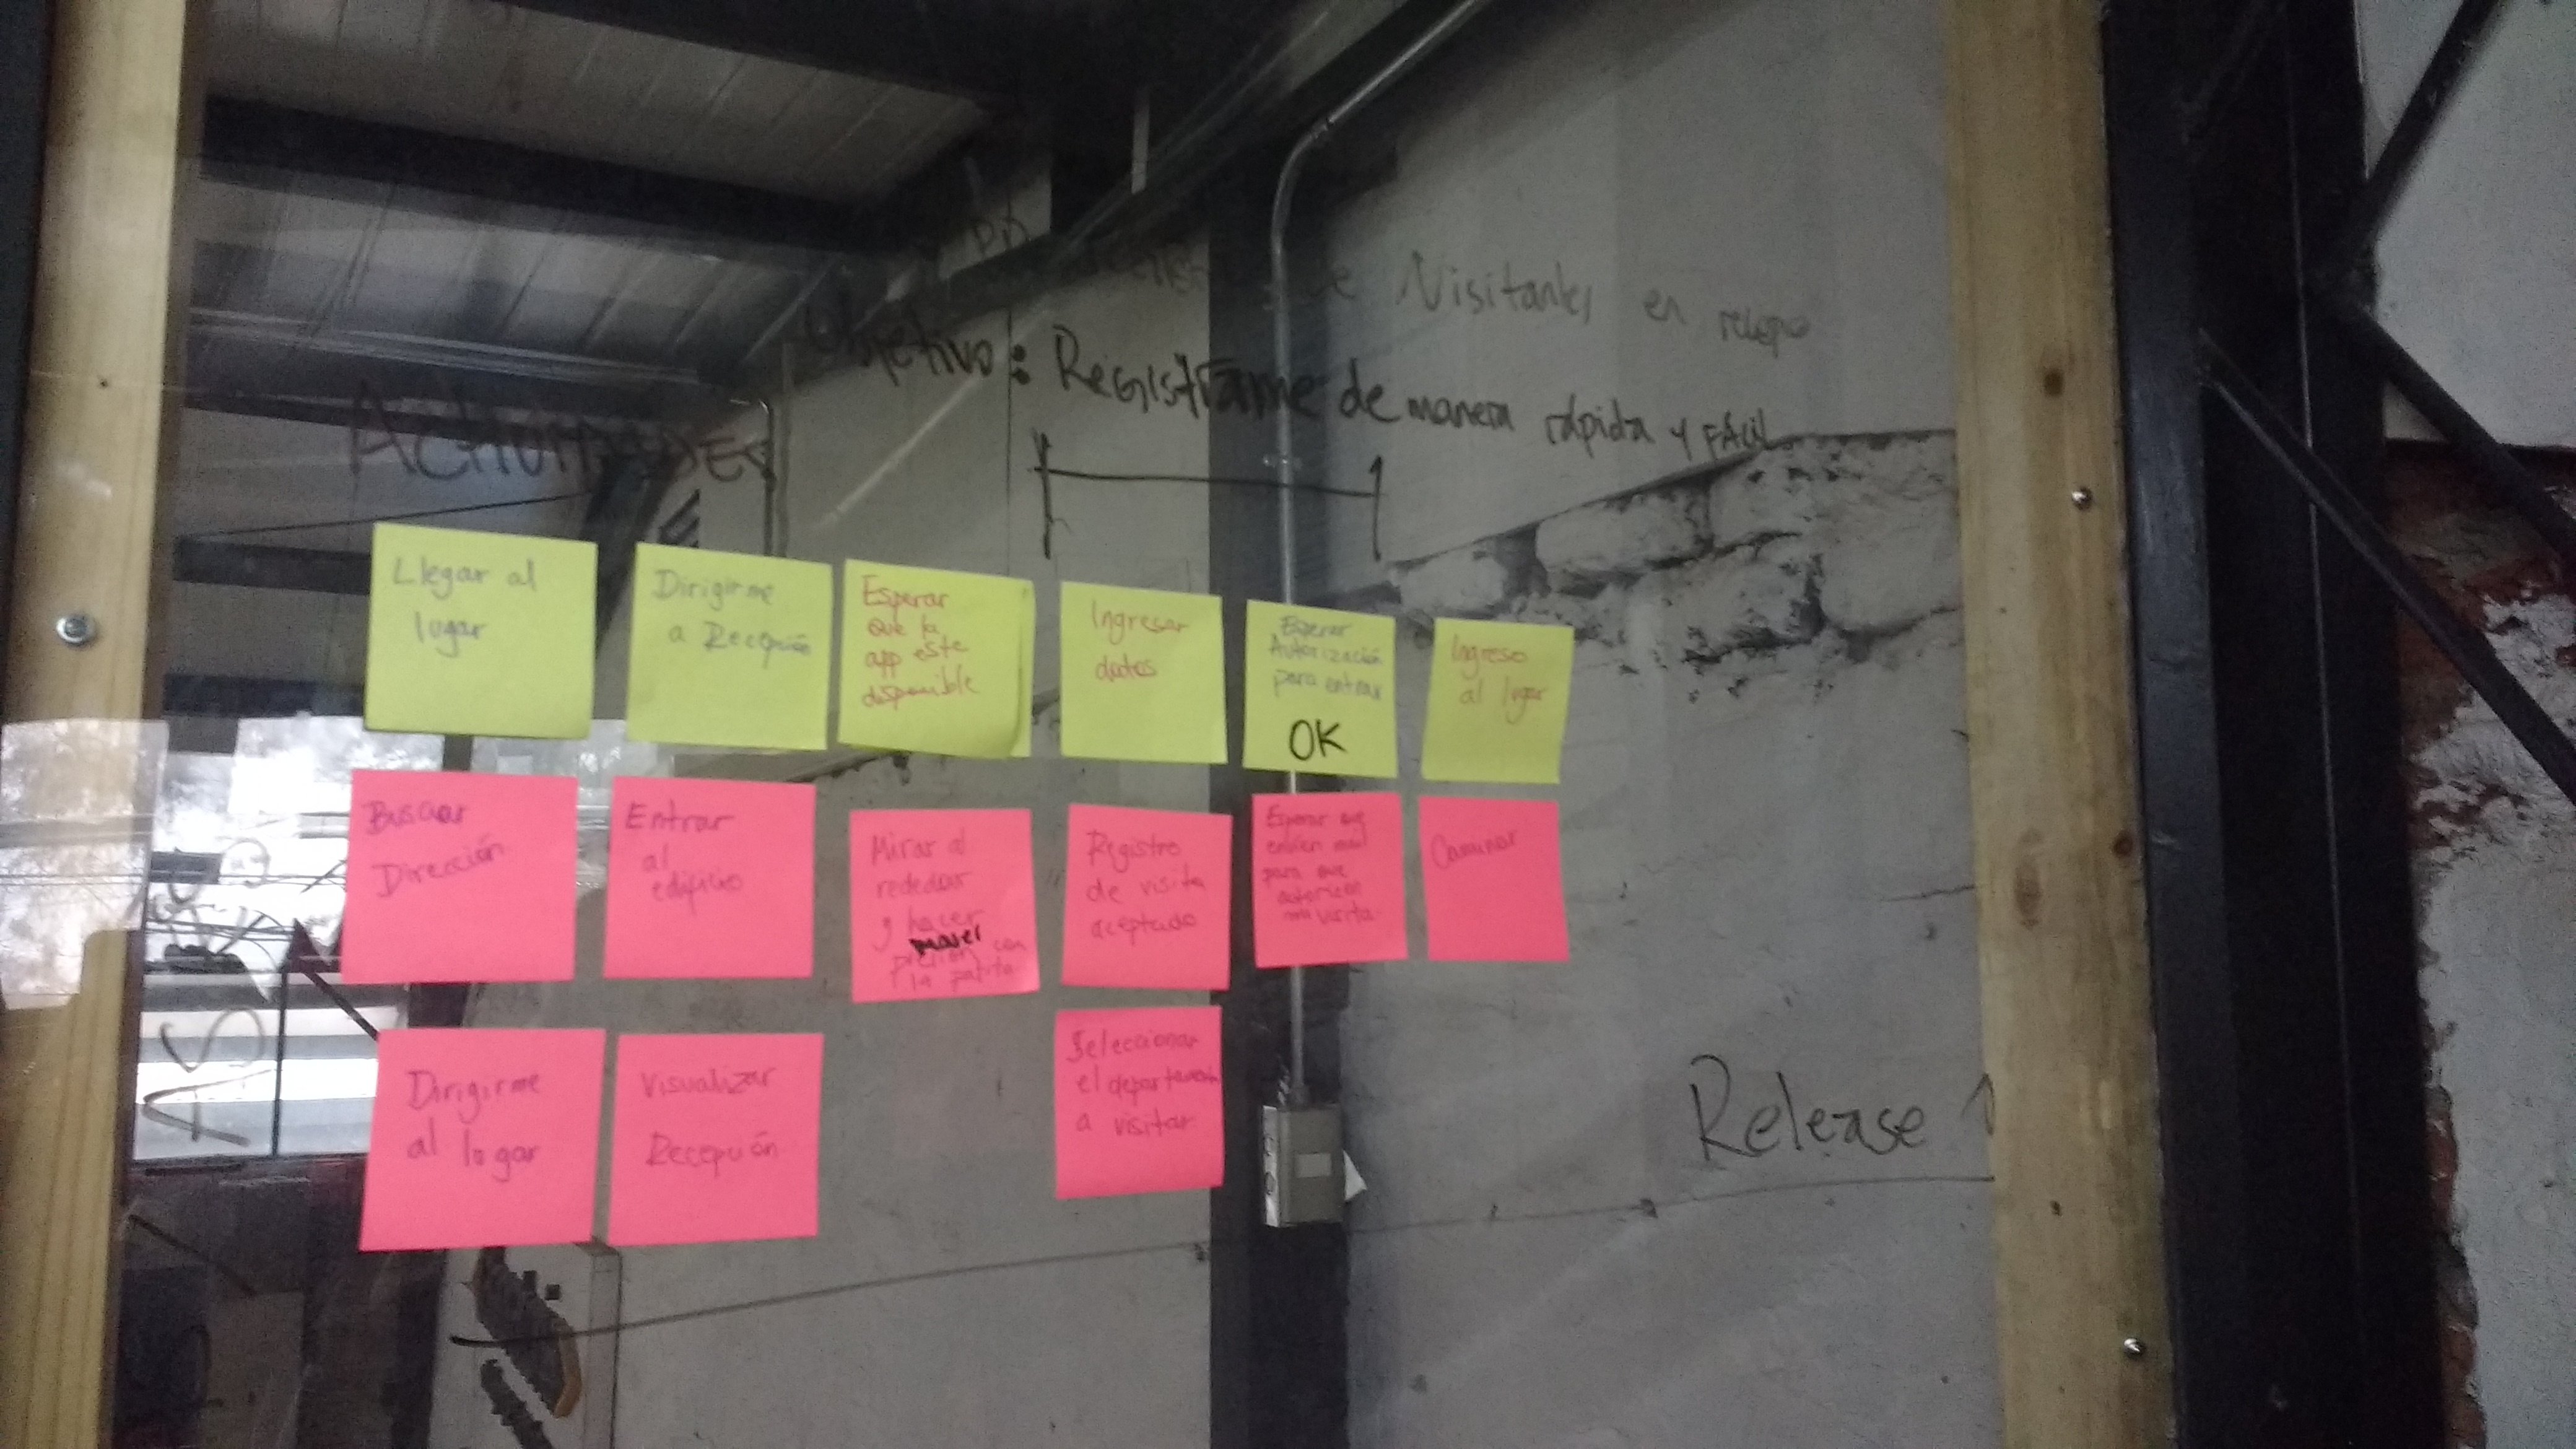 de Visitantes en
Objetivo: Registrarme de manera rápida y FÁCIL
Actividades
Llegar al
lugar
Dirigirme
a Recepción
Esperar
que la
app este
disponible
Ingresar
datos
Esperar
Autorización
para entrar
OK
Ingreso
al lugar
Buscar
Dirección
Entrar
al
edificio
Mirar al
rededor
y hacer
presión con
la patita
Registro
de visita
aceptado
Esperar que
envíen mail
para que
autoricen
mi visita
Caminar
Dirigirme
al lugar
Visualizar
Recepción
Seleccionar
el departamento
a visitar
Release 1